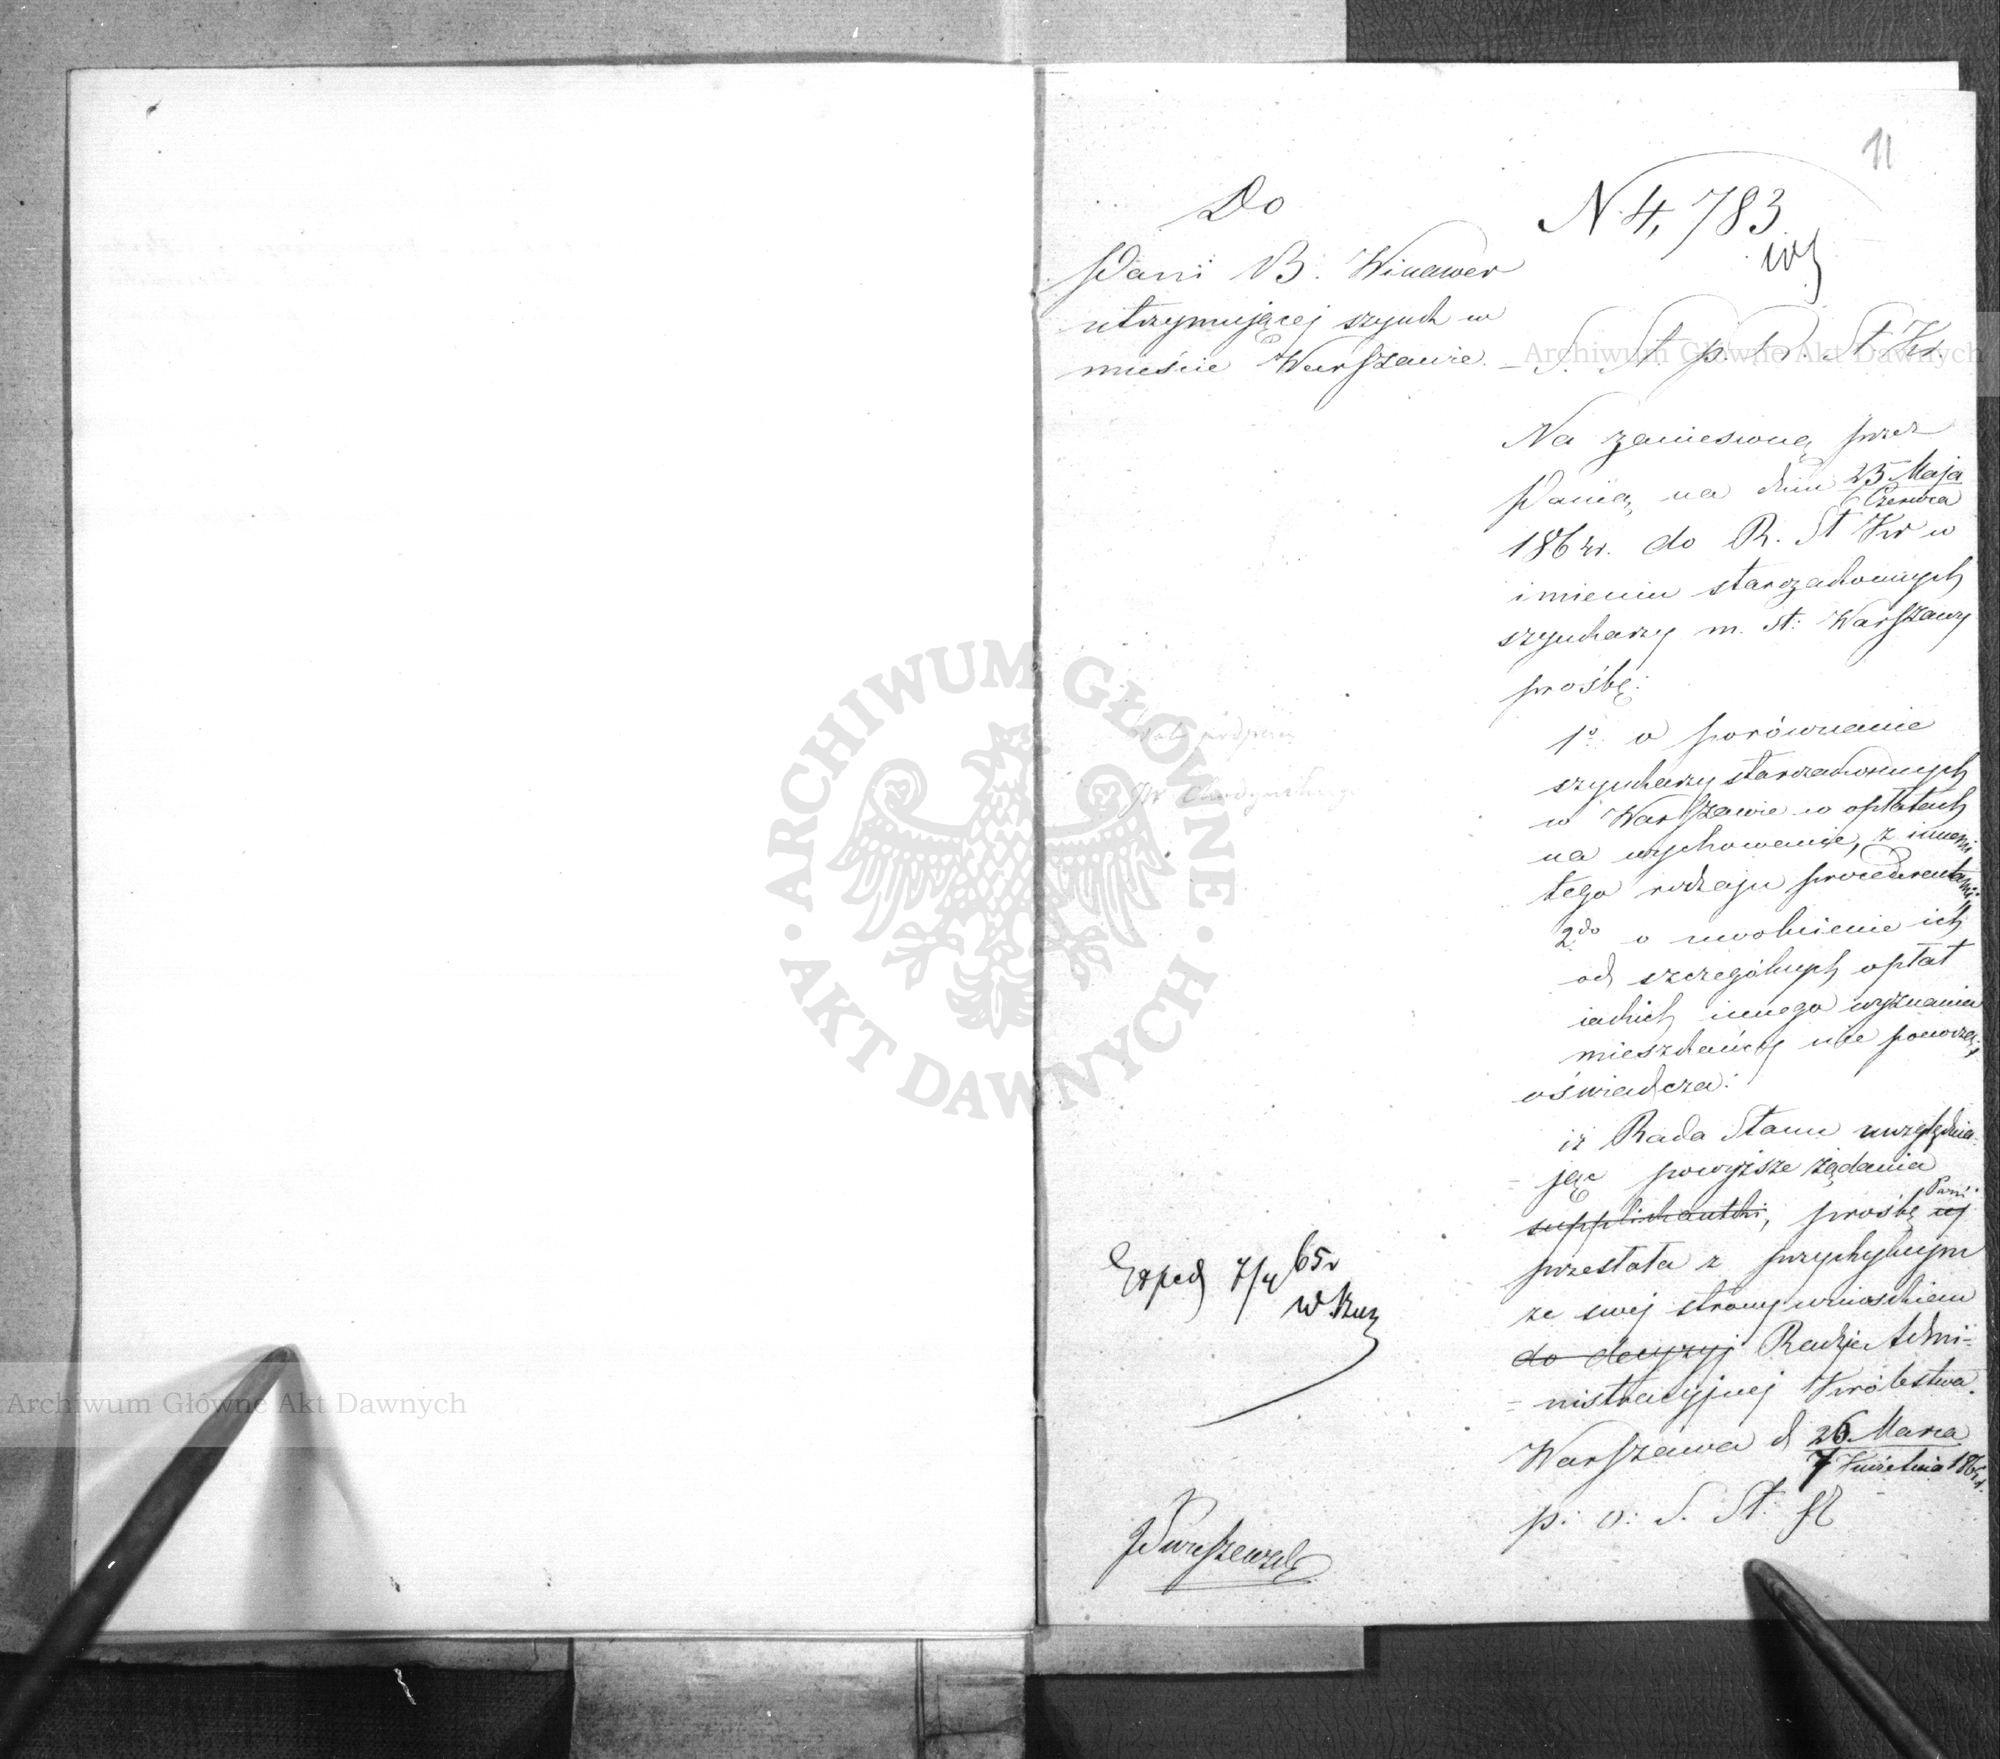 11
Do
Pani B. Winawer
utrzymującej szynk w
mieście Warszawie.
N. 4,783
S. St. p. R. St Kr.
Na zaniesioną przez
Panią na dniu 25 Maja
6 Czerwca
1864 r. do R. St Kr w
imieniu starozakonnych
szynkarzy m. st: Warszawy
prośbę:
1º o porównanie
szynkarzy starozakonnych
w Warszawie w opłatach
na wychowanie, z innemi
tego rodzaju procederentami
2do o uwolnienie ich
od szczególnych opłat
iakich innego wyznania
mieszkańcy nie ponoszą,
oświadcza:
iż Rada Stanu uwzględnia-
=jąc powyższe żądania
Pani
supplikantki, prośbę jej
przesłała z przychylnym
ze swej strony wnioskiem
do decyzyj Radzie Admi=
=nistracyjnej Królestwa.
Warszawa d 26 Marca
7 Kwietnia 1865 r.
p: o: S. St:
Exped 7/4 65 r
ARCHIWUM GŁÓWNE
· AKT DAWNYCH ·
Archiwum Główne Akt Dawnych
Archiwum Główne Akt Dawnych